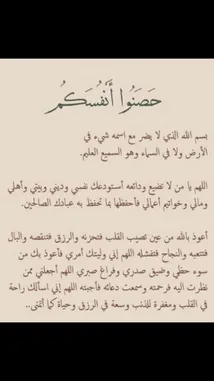 حَصِّنُوا أَنْفُسَكُمْ
بسم الله الذي لا يضر مع اسمه شيء في
الأرض ولا في السماء وهو السميع العليم.
اللهم يا من لا تضيع ودائعه أستودعك نفسي وديني وبيتي وأهلي
ومالي وخواتيم أعمالي فأحفظها بما تحفظ به عبادك الصالحين.
أعوذ بالله من عين تصيب القلب فتحزنه والرزق فتنقصه والبال
فتتعبه والنجاح فتفشله اللهم إني وليتك أمري فأعوذ بك من
سوء حظي وضيق صدري وفراغ صبري اللهم أجعلني ممن
نظرت اليه فرحمته وسمعت دعائه فأجبته اللهم إني اسألك راحة
في القلب ومغفرة للذنب وسعة في الرزق وحياة كما أتمنى..